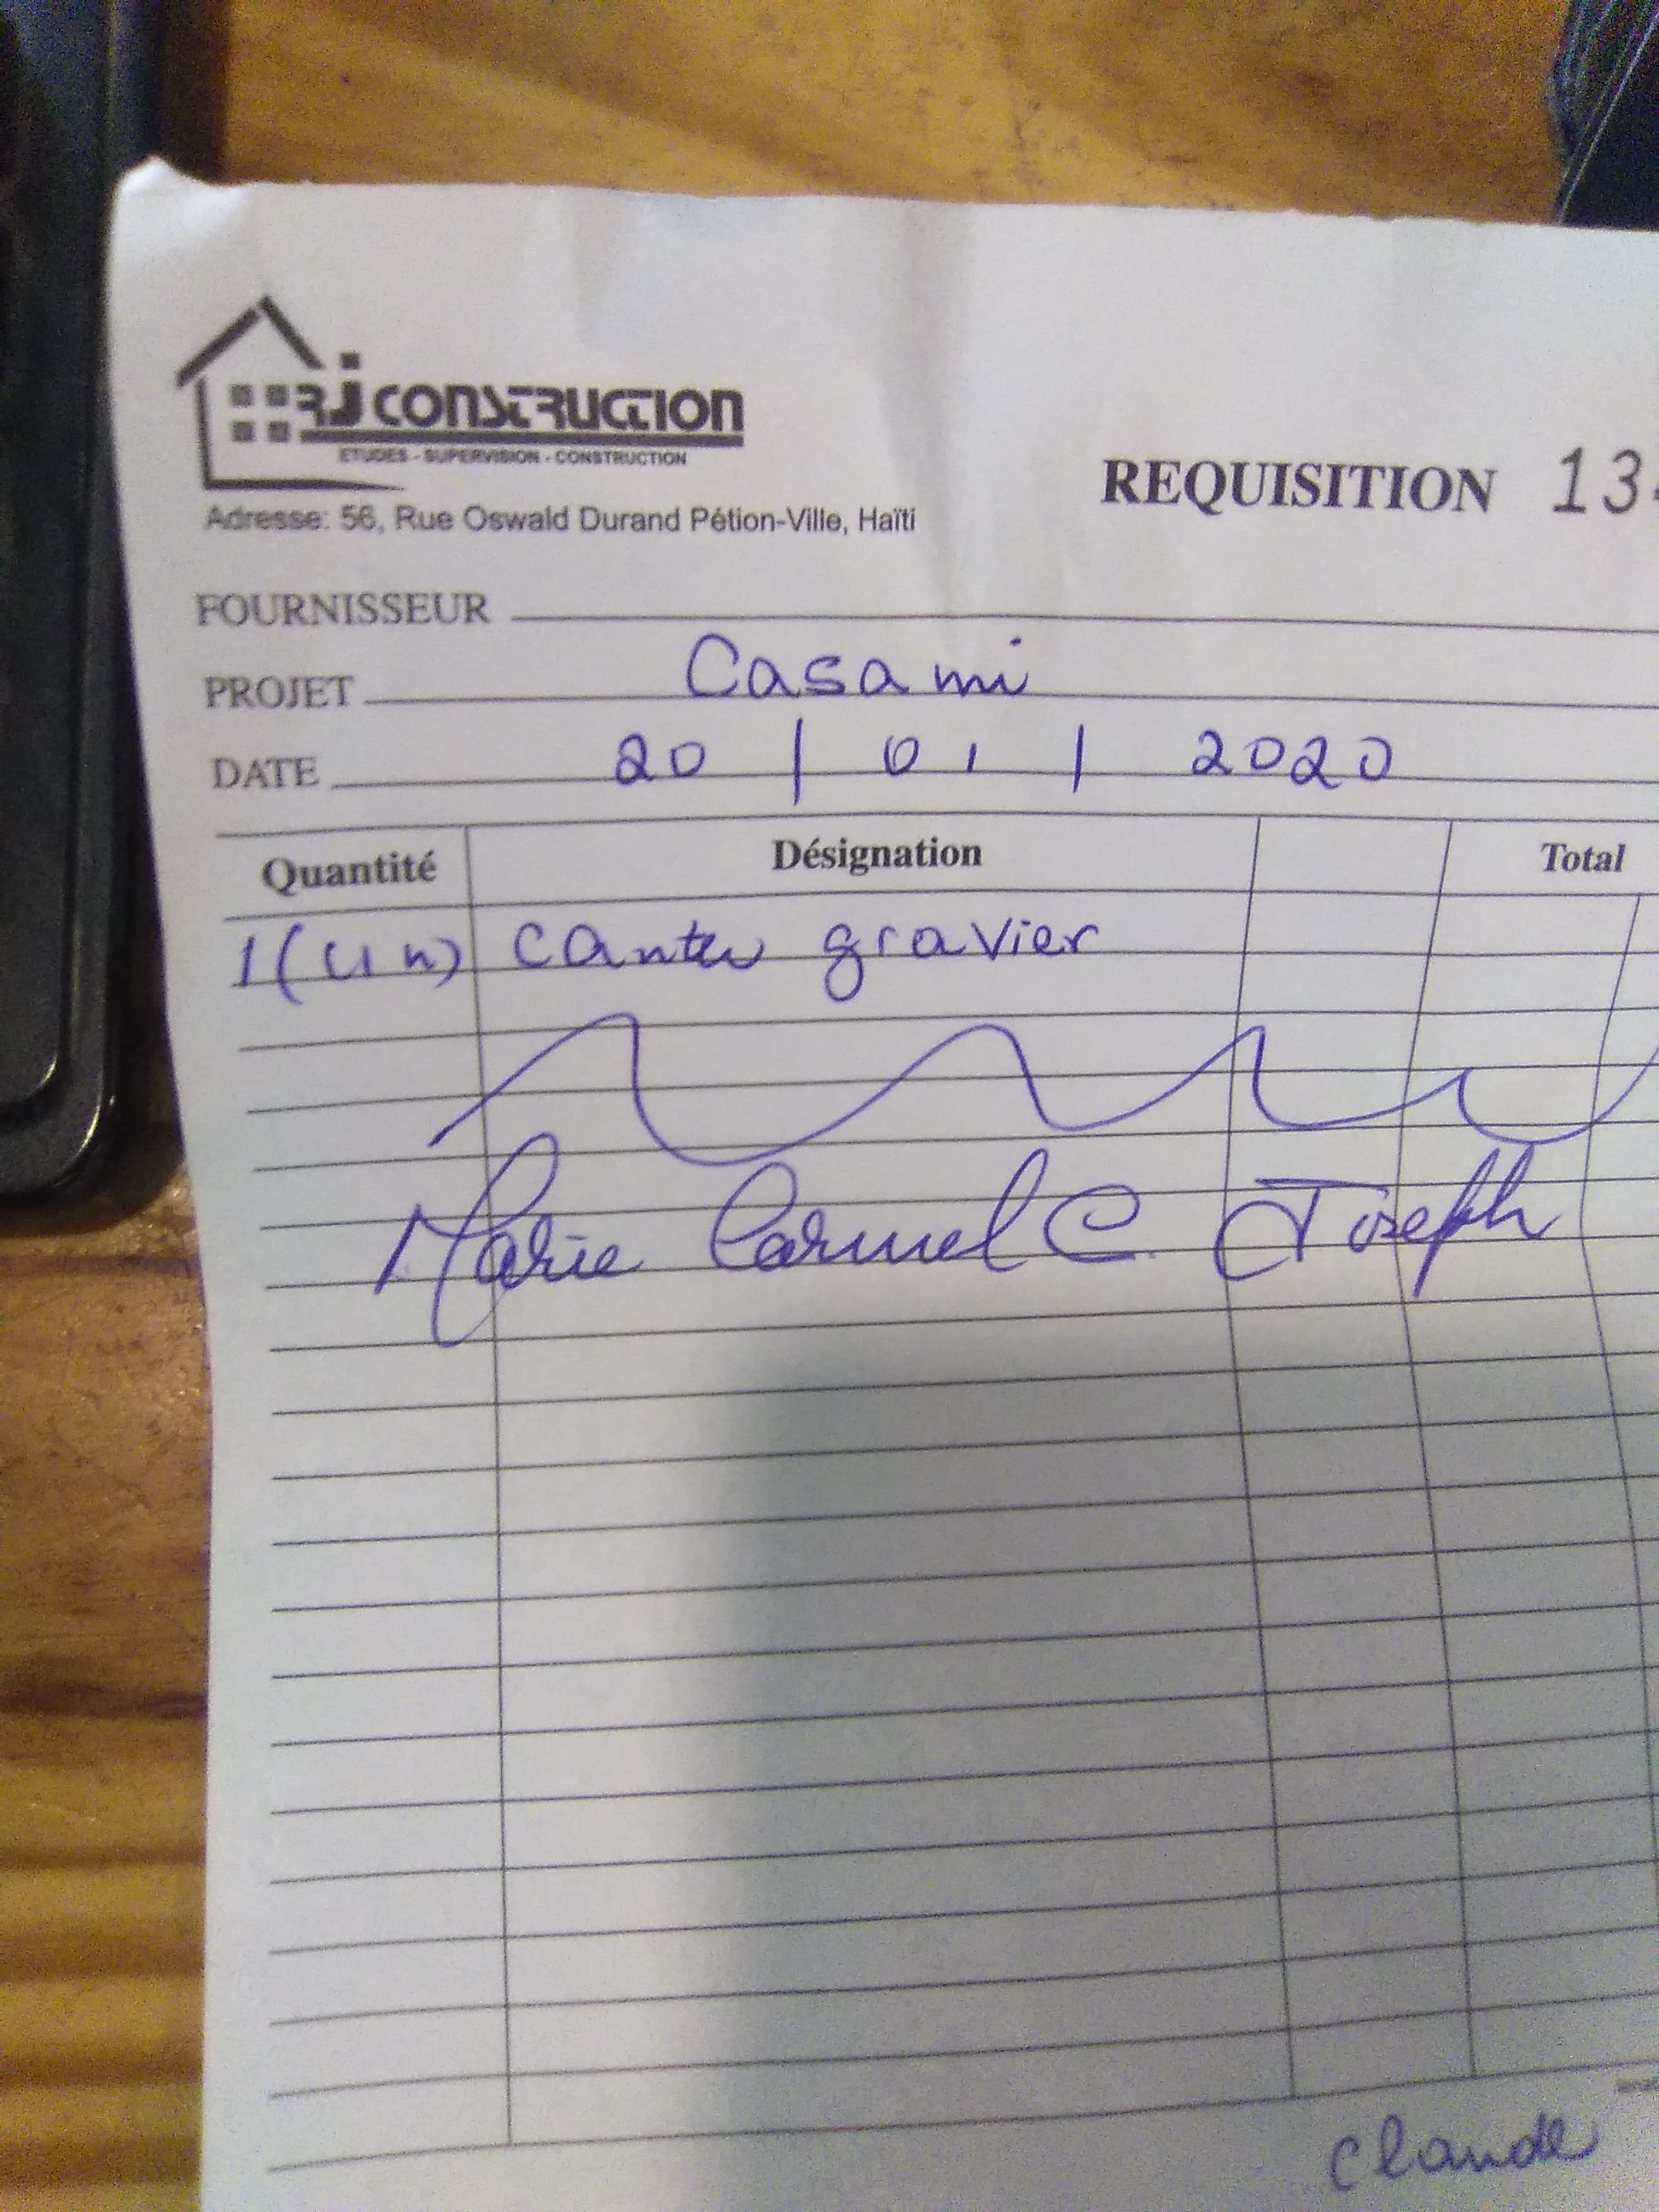 RJ CONSTRUCTION
ETUDES - SUPERVISION - CONSTRUCTION
Adresse: 56, Rue Oswald Durand Pétion-Ville, Haïti
REQUISITION 13
FOURNISSEUR
PROJET Casami
DATE 20 / 01 / 2020
Quantité Désignation Total
1 (un) canter gravier
Marie Carmel C. Joseph
Claude